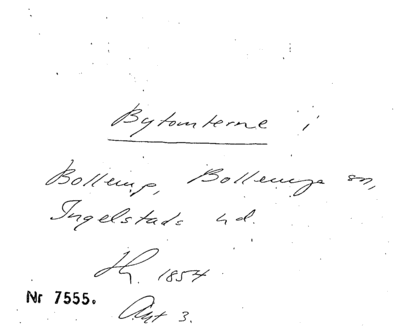 Bytomterne i
Bollerup, Bollerups sn,
Ingelstads hd.
1854
Nr 7555.
Akt 3.